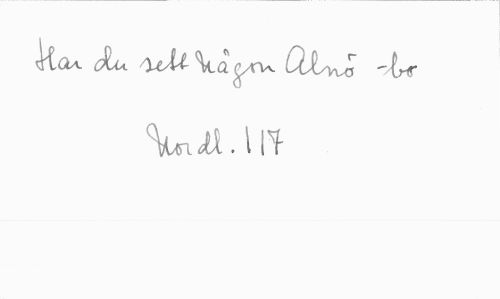 Har du sett någon Alnö -bo
Nordl. 117